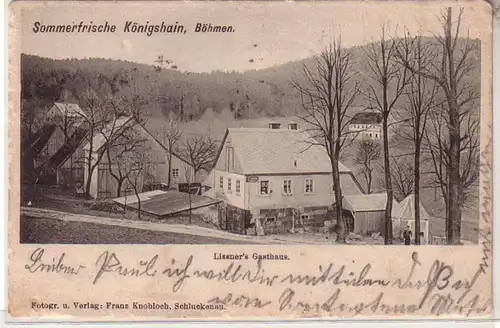 Sommerfrische Königshain, Böhmen.
Lissner's Gasthaus.
Lieber Paul ich will dir mitteilen daß Du
vom
Fotogr. u. Verlag: Franz Knobloch, Schluckenau.